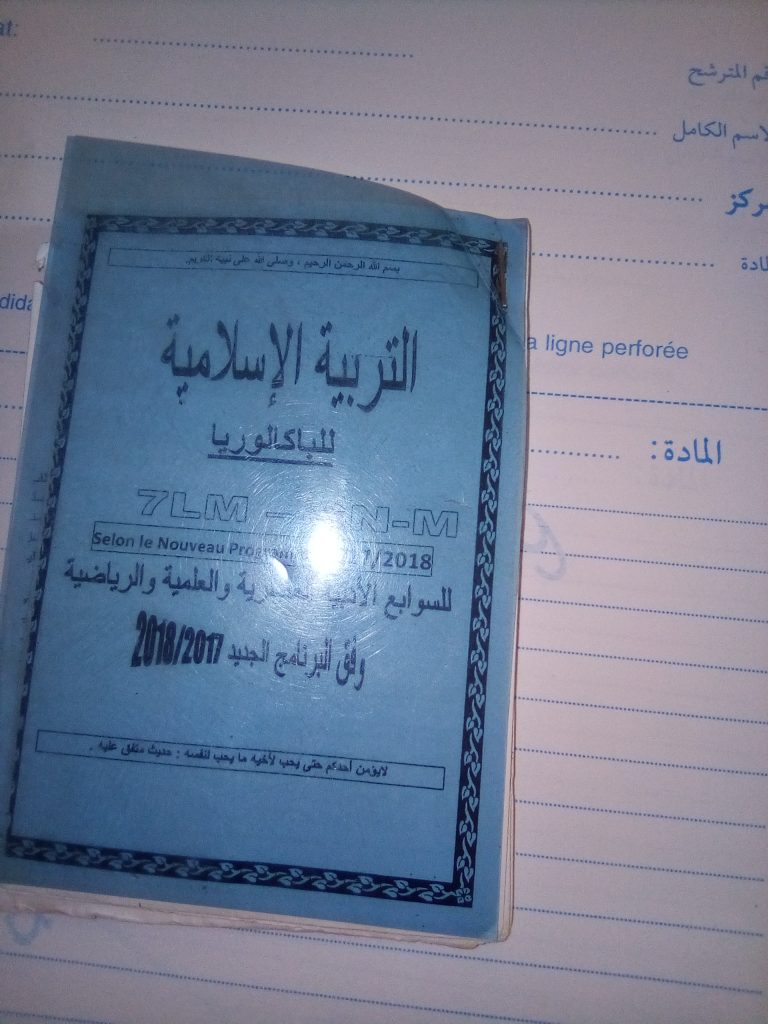 at:
قم المترشح
لاسم الكامل
ركز
ادة
dida
a ligne perforée
المادة:
بسم الله الرحمن الرحيم ، وصلى الله على نبيه الكريم.
التربية الإسلامية
للباكالوريا
7LM – N-M
Selon le Nouveau 7/2018
للسوابع والعلمية والرياضية
وفق البرنامج الجديد 2018/2017
لايؤمن أحدكم حتى يحب لأخيه ما يحب لنفسه : حديث متفق عليه .